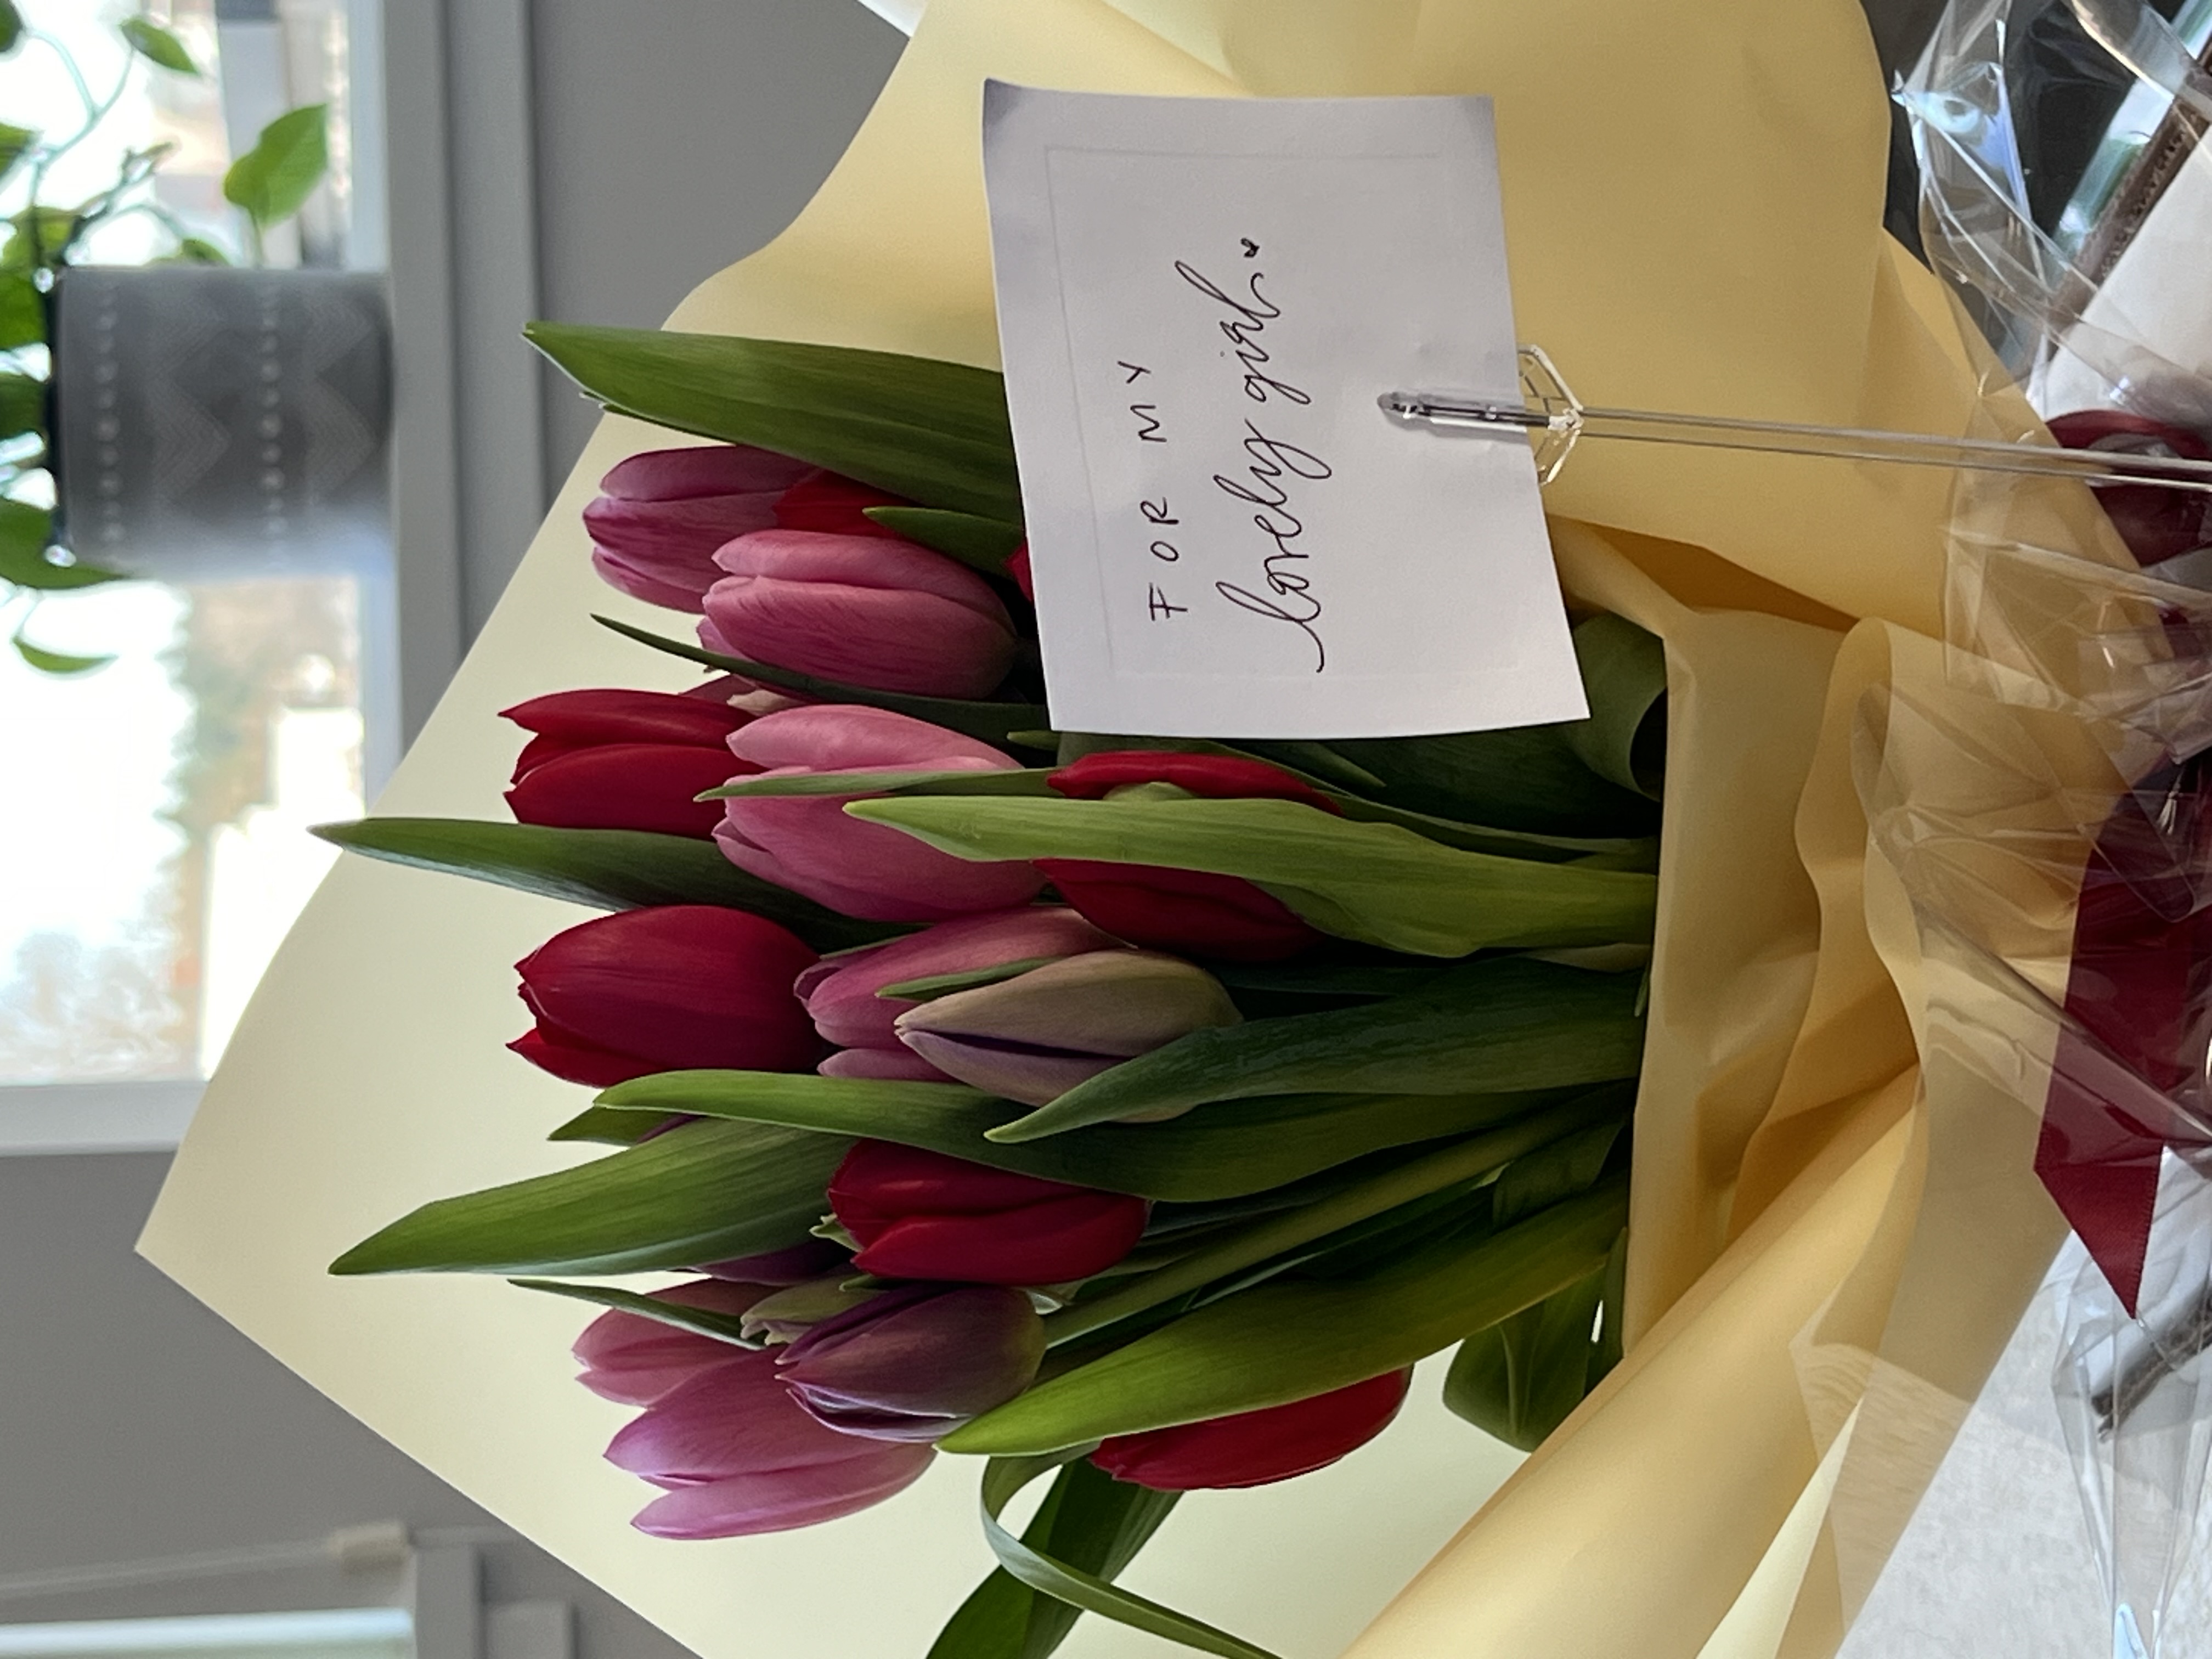 FOR MY
lovely girl. ♥